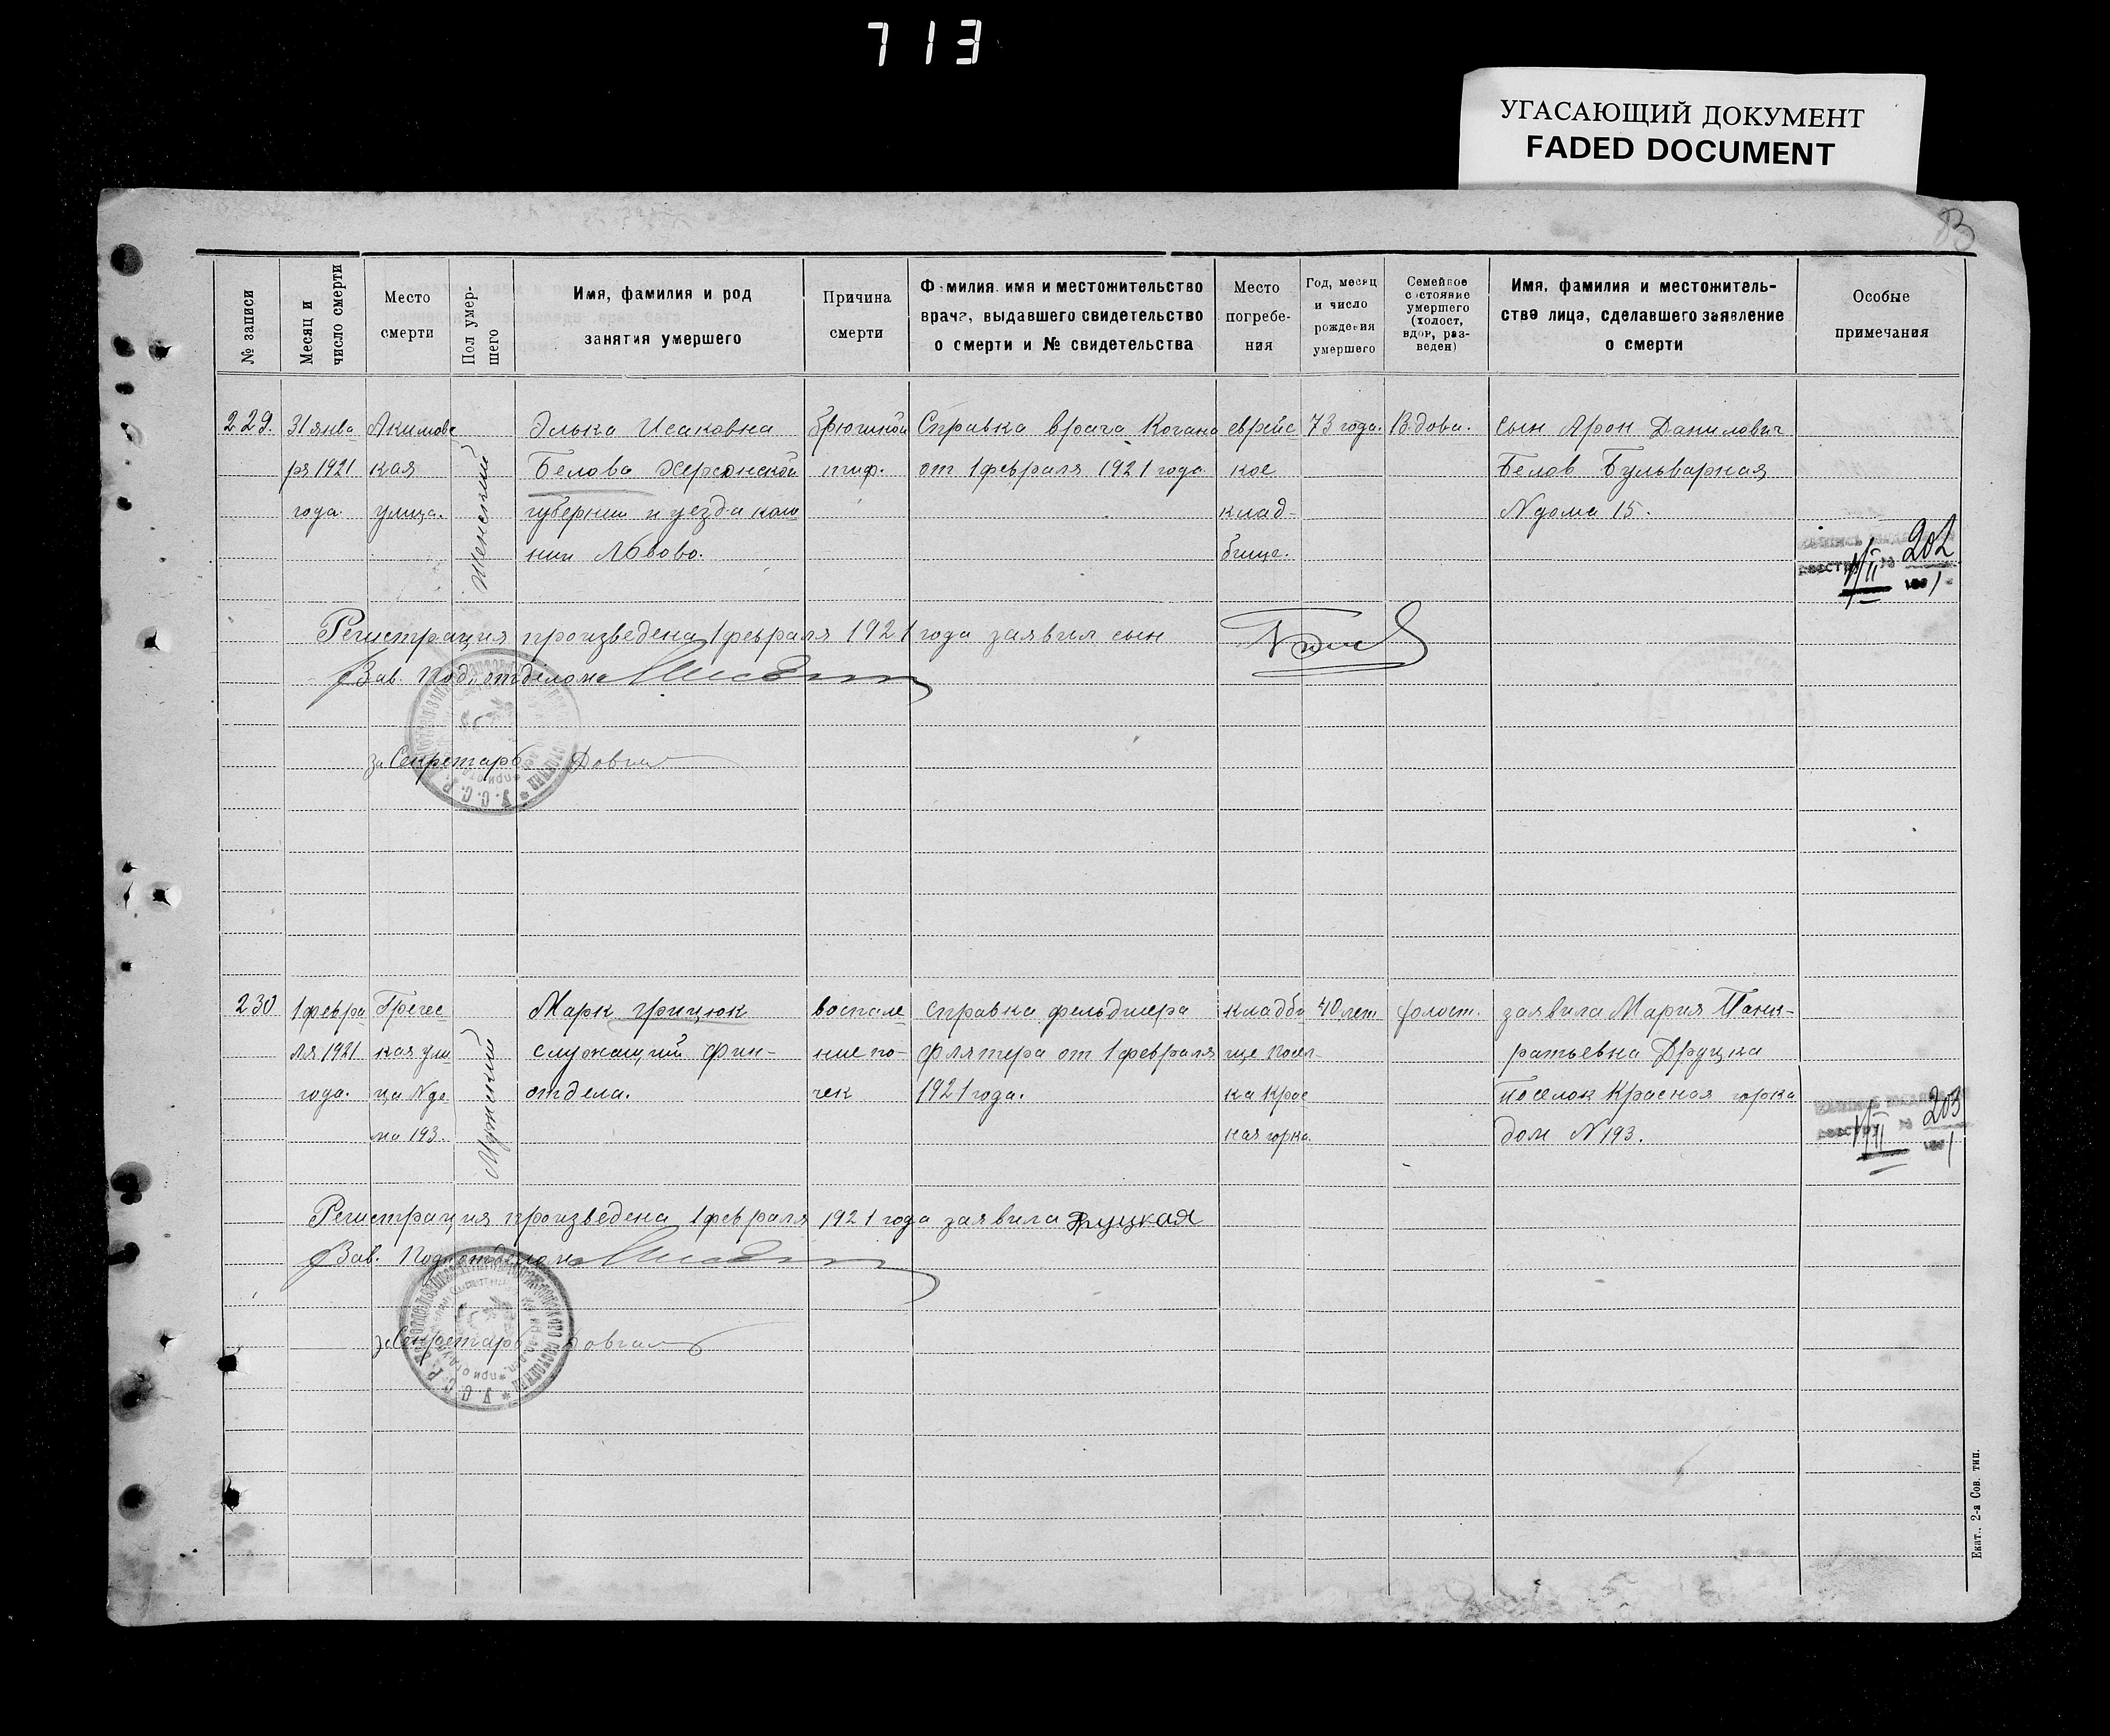 713
УГАСАЮЩИЙ ДОКУМЕНТ
FADED DOCUMENT
№ записи
Месяц и
число смерти
Место
смерти
Пол умер-
шего
Имя, фамилия и род
занятия умершего
Причина
смерти
Фамилия, имя и местожительство
врача, выдавшего свидетельство
о смерти и № свидетельства
Место
погребе-
ния
Год, месяц
и число
рождения
умершего
Семейное
состояние
умершего
(холост,
вдов, раз-
веден)
Имя, фамилия и местожитель-
ство лица, сделавшего заявление
о смерти
Особые
примечания
229.
31 янва
ря 1921
года.
Акимовс
кая
улица.
Женский
Элька Исаковна
Белова Херсонской
губернии и уезда коло
нии Львово.
брюшной
тиф.
Справка врача Когана
от 1 февраля 1921 года
еврейс
кое
клад-
бище.
73 года.
Вдова.
Сын Арон Данилович
Белов Бульварная
N дома 15.
202
Регистрация произведена 1 февраля 1921 года заявил сын
Зав. Подотделом
за Секретарь
230
1 февра
ля 1921
года.
Гречес
кая ули
ца N до
ма 193.
Мужский
Марк Грицюк
служащий фин-
отдела.
воспале
ние по-
чек
справка фельдшера
Флятера от 1 февраля
1921 года.
кладби
ще посел-
ка Крас
ная горка
40 лет
холост.
заявила Мария Панк-
ратьевна Друцка
поселок Красная горка
дом N 193.
203
Регистрация произведена 1 февраля 1921 года заявила Друцкая
Зав. Подотделом
за Секретарь
Екат., 2-я Сов. тип.